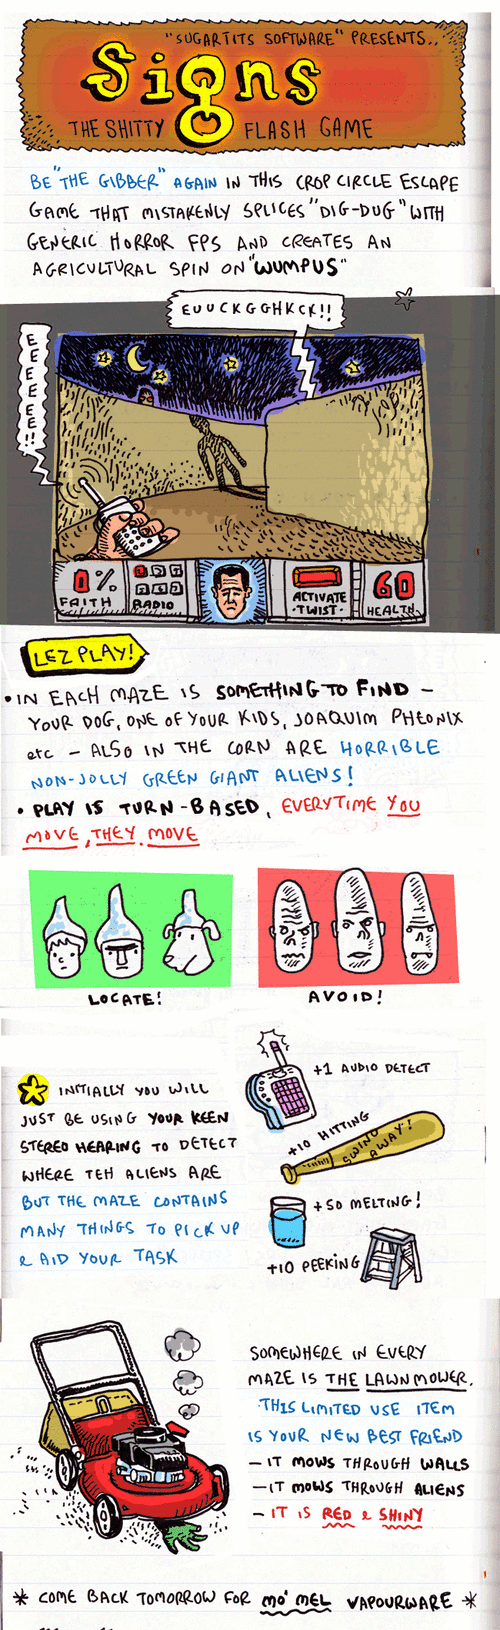 "SUGARTITS SOFTWARE" PRESENTS..
Signs
THE SHITTY FLASH GAME
BE "THE GIBBER" AGAIN IN THIS CROP CIRCLE ESCAPE
GAME THAT MISTAKENLY SPLICES "DIG-DUG" WITH
GENERIC HORROR FPS AND CREATES AN
AGRICULTURAL SPIN ON "WUMPUS"
EUUCKGGHKCK!!
EEEEEEE!!
0%
FAITH
RADIO
ACTIVATE
·TWIST·
60
HEALTH
LEZ PLAY!
• IN EACH MAZE IS SOMETHING TO FIND –
YOUR DOG, ONE OF YOUR KIDS, JOAQUIM PHEONIX
etc – ALSO IN THE CORN ARE HORRIBLE
NON-JOLLY GREEN GIANT ALIENS!
• PLAY IS TURN-BASED, EVERYTIME YOU
MOVE, THEY MOVE
LOCATE!
AVOID!
INITIALLY YOU WILL
JUST BE USING YOUR KEEN
STEREO HEARING TO DETECT
WHERE TEH ALIENS ARE
BUT THE MAZE CONTAINS
MANY THINGS TO PICK UP
& AID YOUR TASK
+1 AUDIO DETECT
+10 HITTING
SWING AWAY!
+50 MELTING!
+10 PEEKING
SOMEWHERE IN EVERY
MAZE IS THE LAWNMOWER.
THIS LIMITED USE ITEM
IS YOUR NEW BEST FRIEND
– IT MOWS THROUGH WALLS
– IT MOWS THROUGH ALIENS
– IT IS RED & SHINY
* COME BACK TOMORROW FOR MO' MEL VAPOURWARE *